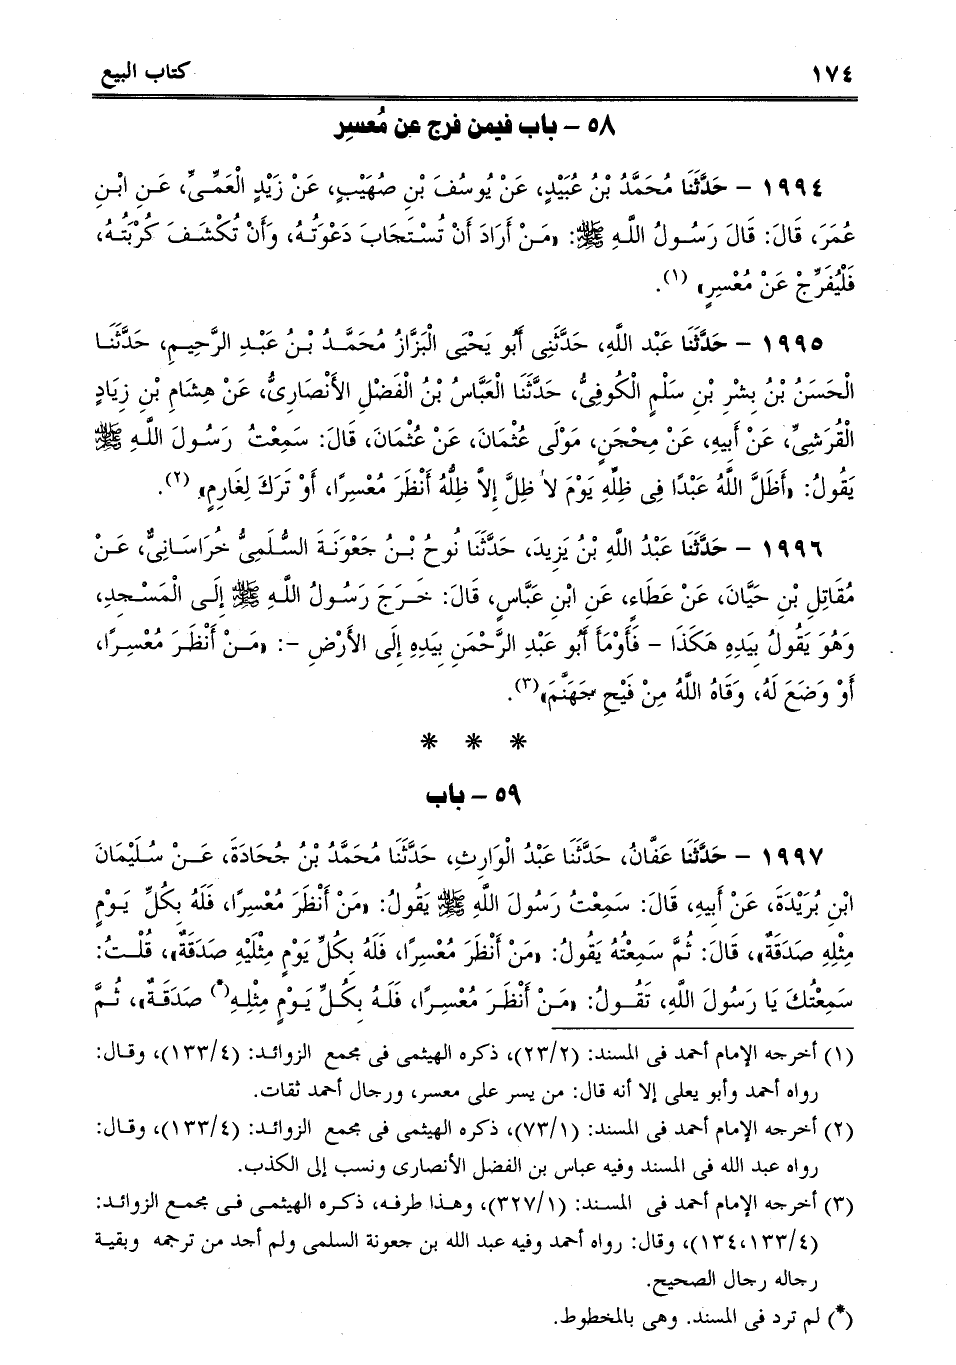 ١٧٤ كتاب البيع
٥٨ – باب فيمن فرج عن مُعسِر
١٩٩٤ – حَدَّثَنَا مُحَمَّدُ بْنُ عُبَيْدٍ، عَنْ يُوسُفَ بْنِ صُهَيْبٍ، عَنْ زَيْدٍ الْعَمِّىِّ، عَنِ ابْنِ
عُمَرَ، قَالَ: قَالَ رَسُولُ اللَّهِ ﷺ: «مَنْ أَرَادَ أَنْ تُسْتَجَابَ دَعْوَتُهُ، وَأَنْ تُكْشَفَ كُرْبَتُهُ،
فَلْيُفَرِّجْ عَنْ مُعْسِرٍ» (١).
١٩٩٥ – حَدَّثَنَا عَبْد اللَّهِ، حَدَّثَنِى أَبُو يَحْيَى الْبَزَّازُ مُحَمَّدُ بْنُ عَبْدِ الرَّحِيمِ، حَدَّثَنَا
الْحَسَنُ بْنُ بِشْرِ بْنِ سَلْمٍ الْكُوفِىُّ، حَدَّثَنَا الْعَبَّاسُ بْنُ الْفَضْلِ الأَنْصَارِىُّ، عَنْ هِشَامِ بْنِ زِيَادٍ
الْقُرَشِىِّ، عَنْ أَبِيهِ، عَنْ مِحْجَنٍ، مَوْلَى عُثْمَانَ، عَنْ عُثْمَانَ، قَالَ: سَمِعْتُ رَسُولَ اللَّهِ ﷺ
يَقُولُ: «أَظَلَّ اللَّهُ عَبْدًا فِى ظِلِّهِ يَوْمَ لاَ ظِلَّ إِلاَّ ظِلُّهُ أَنْظَرَ مُعْسِرًا، أَوْ تَرَكَ لِغَارِمٍ» (٢).
١٩٩٦ – حَدَّثَنَا عَبْدُ اللَّهِ بْنُ يَزِيدَ، حَدَّثَنَا نُوحُ بْنُ جَعْوَنَةَ السُّلَمِىُّ خُرَاسَانِىٌّ، عَنْ
مُقَاتِلِ بْنِ حَيَّانَ، عَنْ عَطَاءٍ، عَنِ ابْنِ عَبَّاسٍ، قَالَ: خَرَجَ رَسُولُ اللَّهِ ﷺ إِلَى الْمَسْجِدِ،
وَهُوَ يَقُولُ بِيَدِهِ هَكَذَا – فَأَوْمَأَ أَبُو عَبْدِ الرَّحْمَنِ بِيَدِهِ إِلَى الأَرْضِ –: «مَنْ أَنْظَرَ مُعْسِرًا،
أَوْ وَضَعَ لَهُ، وَقَاهُ اللَّهُ مِنْ فَيْحِ جَهَنَّمَ» (٣).
* * *
٥٩ – باب
١٩٩٧ – حَدَّثَنَا عَفَّانُ، حَدَّثَنَا عَبْدُ الْوَارِثِ، حَدَّثَنَا مُحَمَّدُ بْنُ جُحَادَةَ، عَنْ سُلَيْمَانَ
ابْنِ بُرَيْدَةَ، عَنْ أَبِيهِ، قَالَ: سَمِعْتُ رَسُولَ اللَّهِ ﷺ يَقُولُ: «مَنْ أَنْظَرَ مُعْسِرًا، فَلَهُ بِكُلِّ يَوْمٍ
مِثْلِهِ صَدَقَةٌ»، قَالَ: ثُمَّ سَمِعْتُهُ يَقُولُ: «مَنْ أَنْظَرَ مُعْسِرًا، فَلَهُ بِكُلِّ يَوْمٍ مِثْلَيْهِ صَدَقَةٌ»، قُلْتُ:
سَمِعْتُكَ يَا رَسُولَ اللَّهِ، تَقُولُ: «مَنْ أَنْظَرَ مُعْسِرًا، فَلَهُ بِكُلِّ يَوْمٍ مِثْلِهِ (*) صَدَقَةٌ»، ثُمَّ
(١) أخرجه الإمام أحمد فى المسند: (٢٣/٢)، ذكره الهيثمى فى مجمع الزوائد: (١٣٣/٤)، وقال:
رواه أحمد وأبو يعلى إلا أنه قال: من يسر على معسر، ورجال أحمد ثقات.
(٢) أخرجه الإمام أحمد فى المسند: (٧٣/١)، ذكره الهيثمى فى مجمع الزوائد: (١٣٣/٤)، وقال:
رواه عبد الله فى المسند وفيه عباس بن الفضل الأنصارى ونسب إلى الكذب.
(٣) أخرجه الإمام أحمد فى المسند: (٣٢٧/١)، وهذا طرفه، ذكره الهيثمى فى مجمع الزوائد:
(١٣٤،١٣٣/٤)، وقال: رواه أحمد وفيه عبد الله بن جعونة السلمى ولم أجد من ترجمه وبقية
رجاله رجال الصحيح.
(*) لم ترد فى المسند. وهى بالمخطوط.